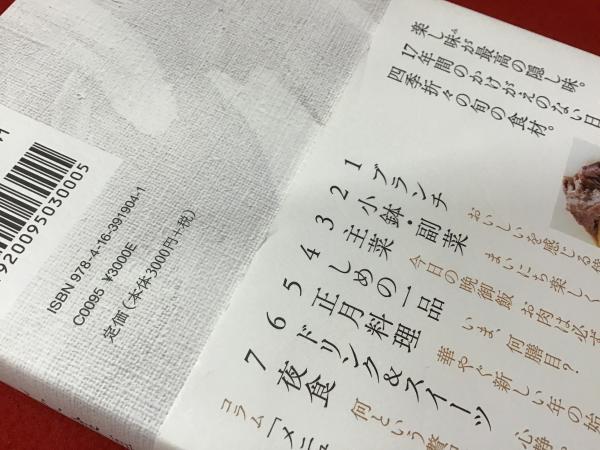 楽し味が最高の隠し味。
17年間のかけがえのない日
四季折々の旬の食材。
1 ブランチ
おいしいを感じる
2 小鉢・副菜
まいにち楽しく
3 主菜
今日の晩御飯 お肉は必ず
4 しめの一品
いま、何膳目?
5 正月料理
華やぐ新しい年の始
6 ドリンク&スイーツ
心静
7 夜食
何という贅
コラム「メニュ
9200095030005
ISBN 978-4-16-391904-1
C0095 ¥3000E
定価(本体3000円+税)